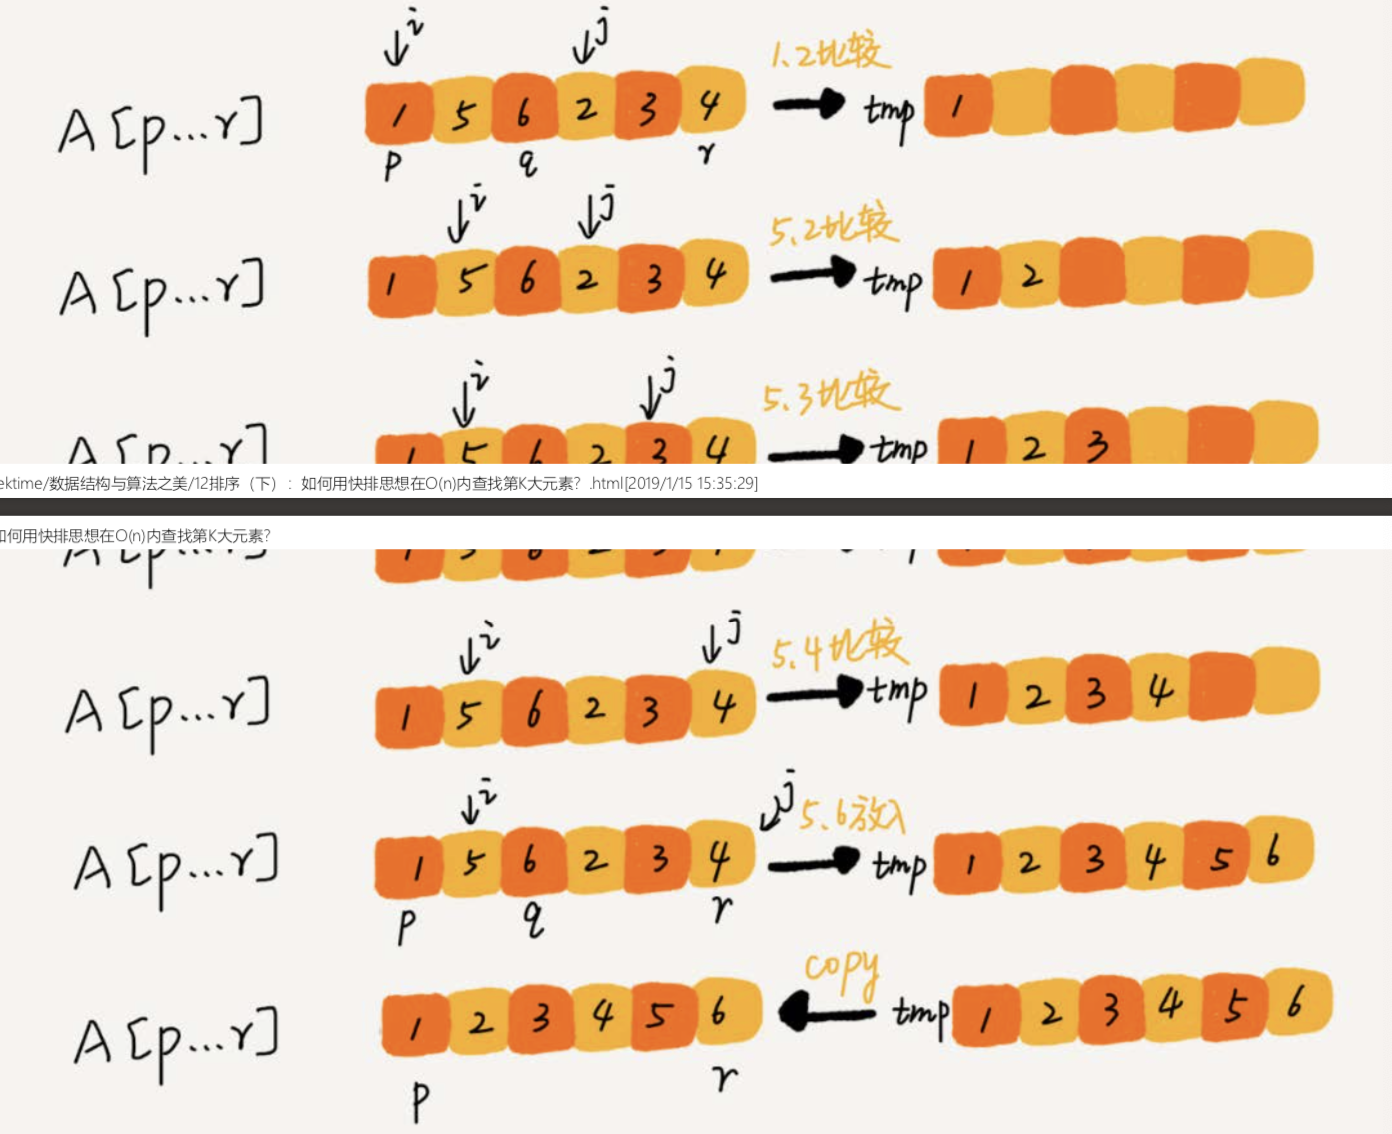 i j
A[p...r] 1 5 6 2 3 4 1.2比较 tmp 1
p q r
i j
A[p...r] 1 5 6 2 3 4 5.2比较 tmp 1 2
i j
A[p...r] 1 5 6 2 3 4 5.3比较 tmp 1 2 3
ektime/数据结构与算法之美/12排序（下）：如何用快排思想在O(n)内查找第K大元素？.html[2019/1/15 15:35:29]
如何用快排思想在O(n)内查找第K大元素？
i j
A[p...r] 1 5 6 2 3 4 5.4比较 tmp 1 2 3 4
i j
A[p...r] 1 5 6 2 3 4 5.6放入 tmp 1 2 3 4 5 6
p q r
A[p...r] 1 2 3 4 5 6 copy tmp 1 2 3 4 5 6
p r